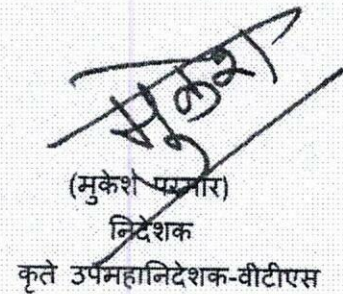 मुकेश
(मुकेश परमार)
निदेशक
कृते उपमहानिदेशक-वीटीएस